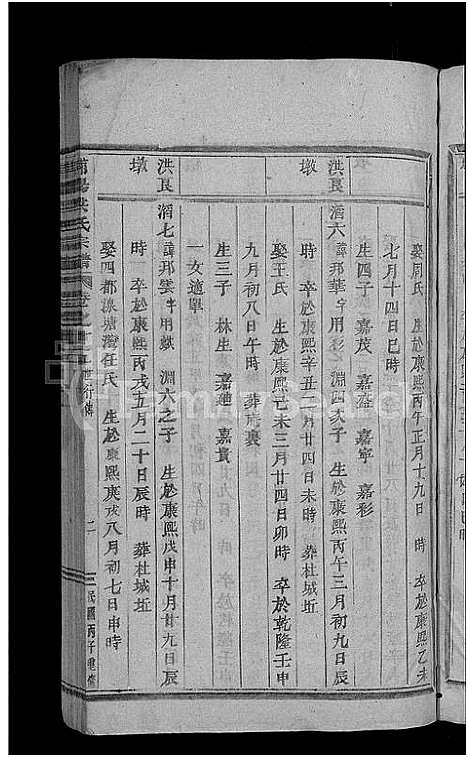 娶周氏 生於康熙丙午正月十九日 時 卒於康熙乙未
七月十四日巳時
生四子 嘉茂 嘉 嘉寧 嘉彩
洪良 滔六 諱邦華字用 淵四次子 生於康熙丙午三月初九日辰
墩 時 卒於康熙辛丑 月廿四日未時 葬杜城坵
娶王氏 生於康熙己未三月廿四日卯時 卒於乾隆壬申
九月初八日午時 葬
生三子 林生 嘉璉 嘉貴
一女適單
洪良 滔七 諱邦雲字用 淵六之子 生於康熙戊申十月廿九日辰
墩 時 卒於康熙丙戌五月二十日辰時 葬杜城坵
娶四都 塘灣任氏 生於康熙庚戌八月初七日申時
洪氏宗譜 卷 世行傳 二 民國丙子重修